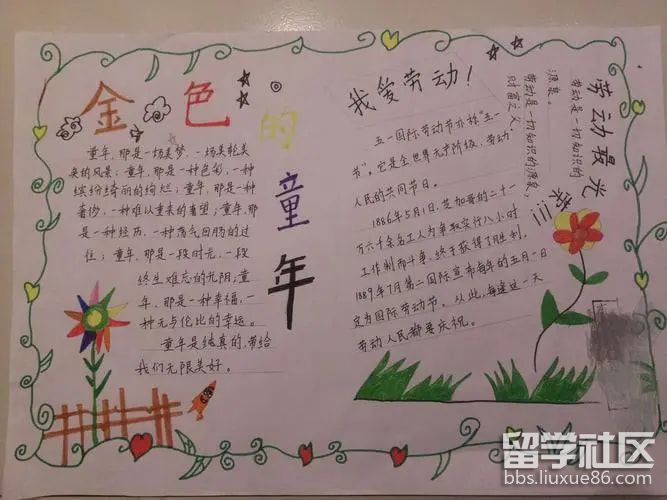 金色的童年
童年,那是一场美梦,一场美轮美
奂的风景;童年,那是一种色彩,一种
缤纷绮丽的绚烂;童年,那是一种
奢侈,一种难以重来的奢望;童年,那
是一种经历,一种荡气回肠的过
往;童年,那是一段时光,一段
终生难忘的光阴;童
年,那是一种幸福,一
种无与伦比的幸运。
童年是纯真的,带给
我们无限美好。
我爱劳动!
五一国际劳动节亦称“五一
节”,它是全世界无产阶级,劳动
人民的共同节日。
1886年5月1日,芝加哥的二十一
万六千余名工人为争取实行八小时
工作制而斗争,终于获得了胜利,
1889年7月第二国际宣布每年的五月一日
定为国际劳动节。从此,每逢这一天
劳动人民都要庆祝。
劳动最光荣!!!
劳动是一切知识的
源泉。
劳动是一切知识的源泉,
财富之父
留学社区
bbs.liuxue86.com